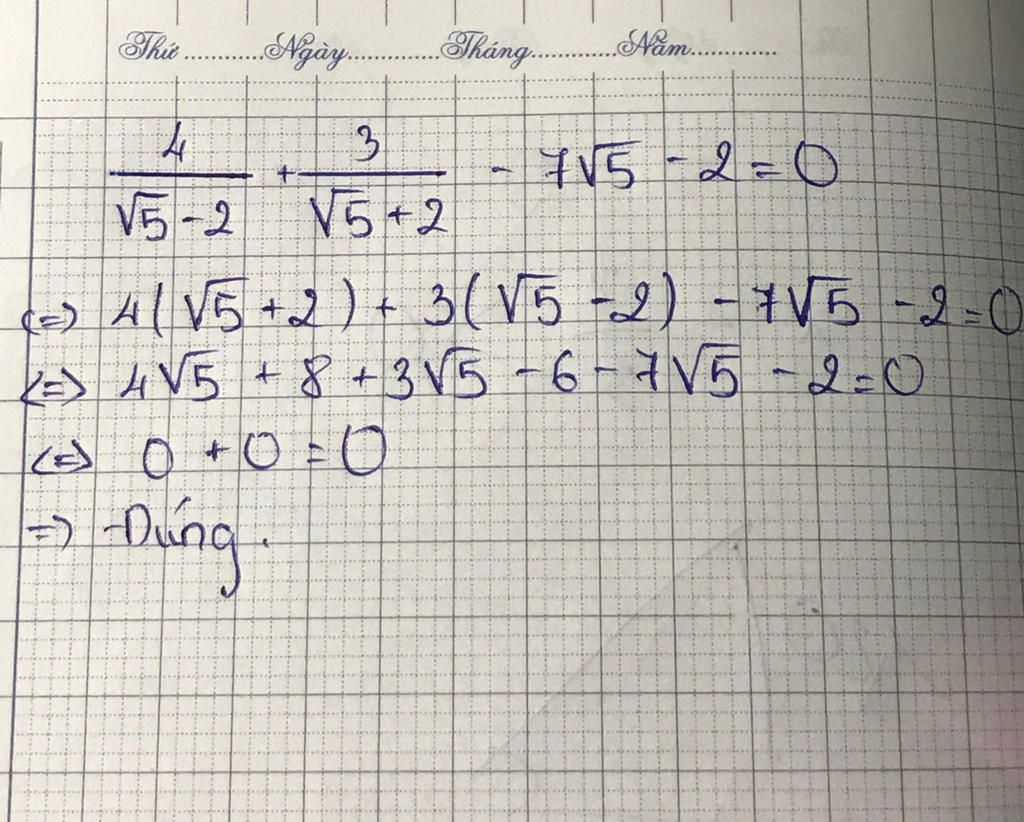 Thứ............Ngày..............Tháng.............Năm.............
4/(√5 - 2) + 3/(√5 + 2) - 7√5 - 2 = 0
<=> 4(√5 + 2) + 3(√5 - 2) - 7√5 - 2 = 0
<=> 4√5 + 8 + 3√5 - 6 - 7√5 - 2 = 0
<=> 0 + 0 = 0
=> Đúng.